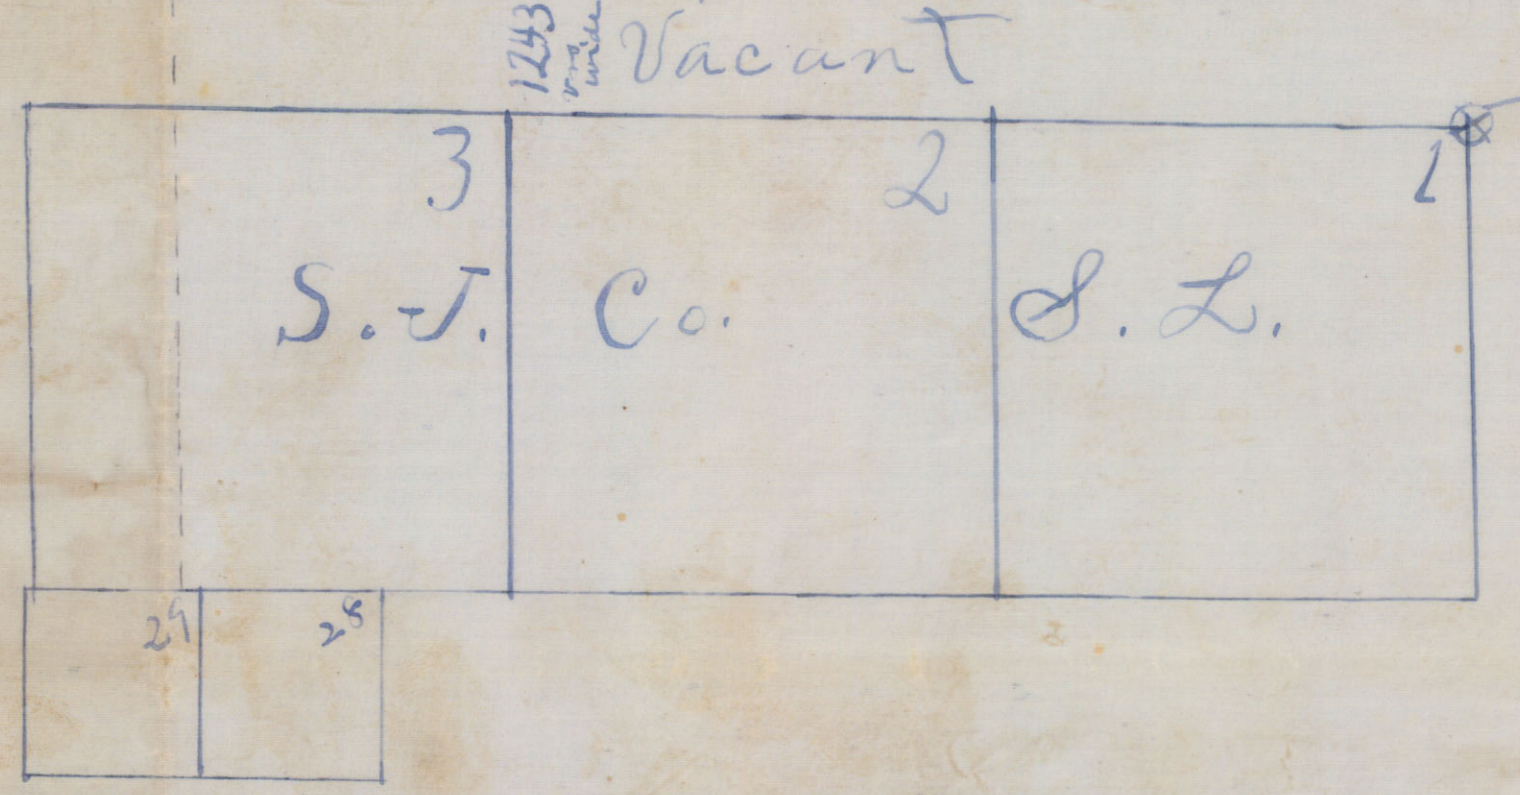 1243
vrs wide
Vacant
3 2 1
S. J. Co. S. L.
29 28